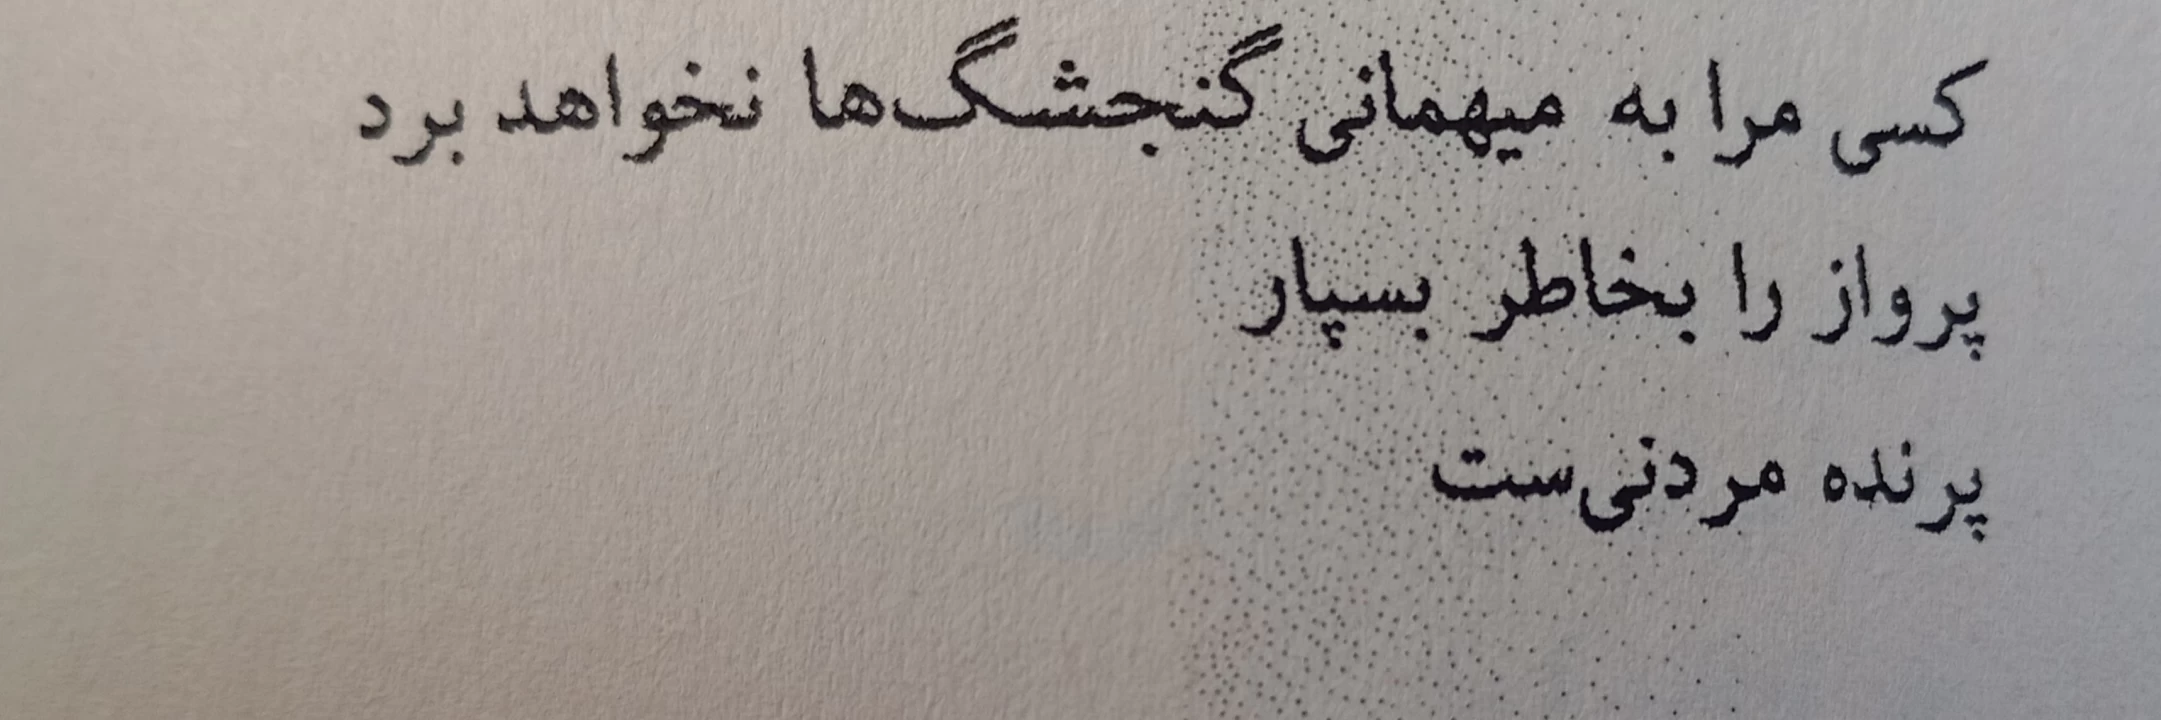 کسی مرا به میهمانی گنجشگ‌ها نخواهد برد
پرواز را بخاطر بسپار
پرنده مردنی‌ست